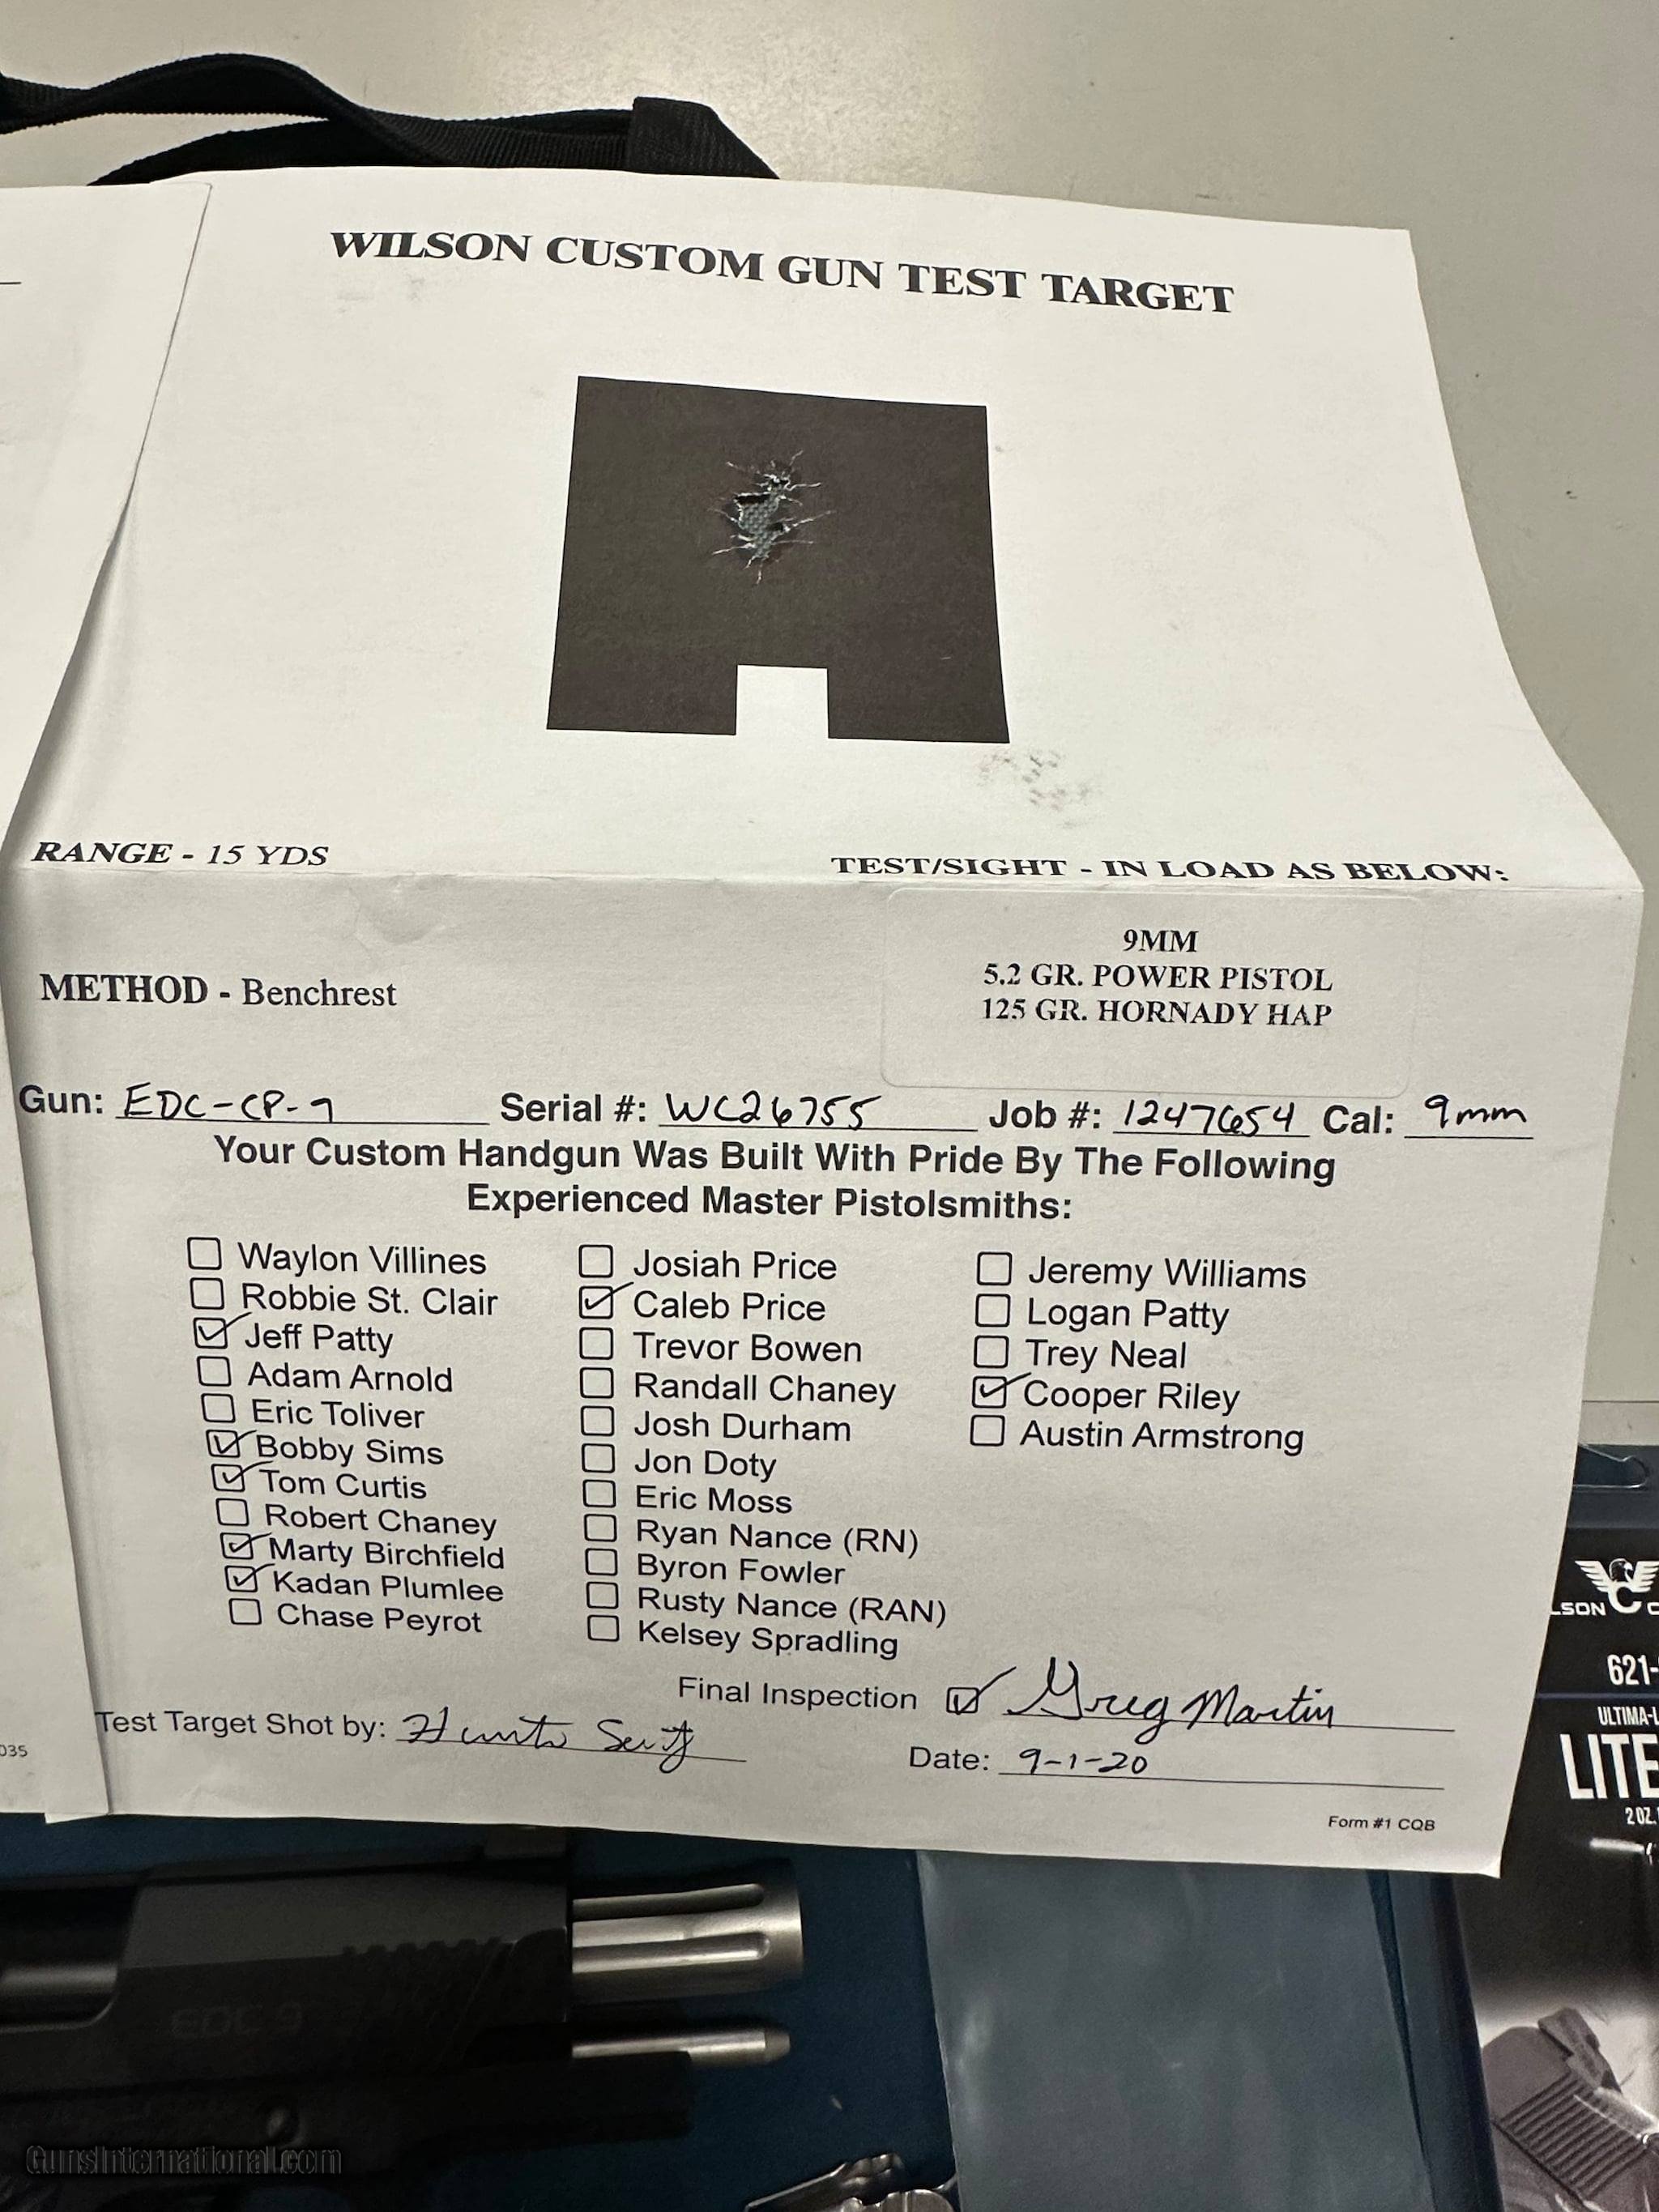 WILSON CUSTOM GUN TEST TARGET
RANGE - 15 YDS
TEST/SIGHT - IN LOAD AS BELOW:
METHOD - Benchrest
9MM
5.2 GR. POWER PISTOL
125 GR. HORNADY HAP
Gun: EDC-CP-9 Serial #: WC26755 Job #: 1247654 Cal: 9mm
Your Custom Handgun Was Built With Pride By The Following
Experienced Master Pistolsmiths:
Waylon Villines
Robbie St. Clair
Jeff Patty
Adam Arnold
Eric Toliver
Bobby Sims
Tom Curtis
Robert Chaney
Marty Birchfield
Kadan Plumlee
Chase Peyrot
Josiah Price
Caleb Price
Trevor Bowen
Randall Chaney
Josh Durham
Jon Doty
Eric Moss
Ryan Nance (RN)
Byron Fowler
Rusty Nance (RAN)
Kelsey Spradling
Jeremy Williams
Logan Patty
Trey Neal
Cooper Riley
Austin Armstrong
Final Inspection Greg Martin
Test Target Shot by:
Date: 9-1-20
Form #1 CQB
035
LSON C
621-
ULTIMA-L
LITE
2 OZ.
EDC 9
GunsInternational.com